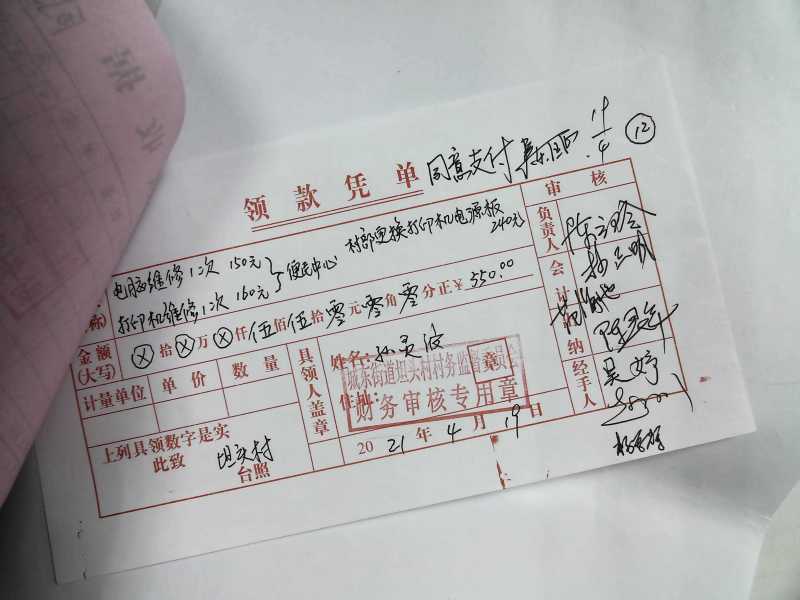 领款凭单
同意支付
19/4
⑫
电脑维修1次 150元
打印机维修1次 160元
便民中心
村部更换打印机电源板
240元
审核
负责人
会计
出纳
经手人
吴婷
称)
金额
(大写)
ⓧ拾ⓧ万ⓧ仟伍佰伍拾零元零角零分正¥550.00
计量单位 单价 数量
具领人盖章
姓名:
住址:
城东街道坦头村村务监督委员会
财务审核专用章
上列具领数字是实
此致 坦头村 台照
2021年4月19日